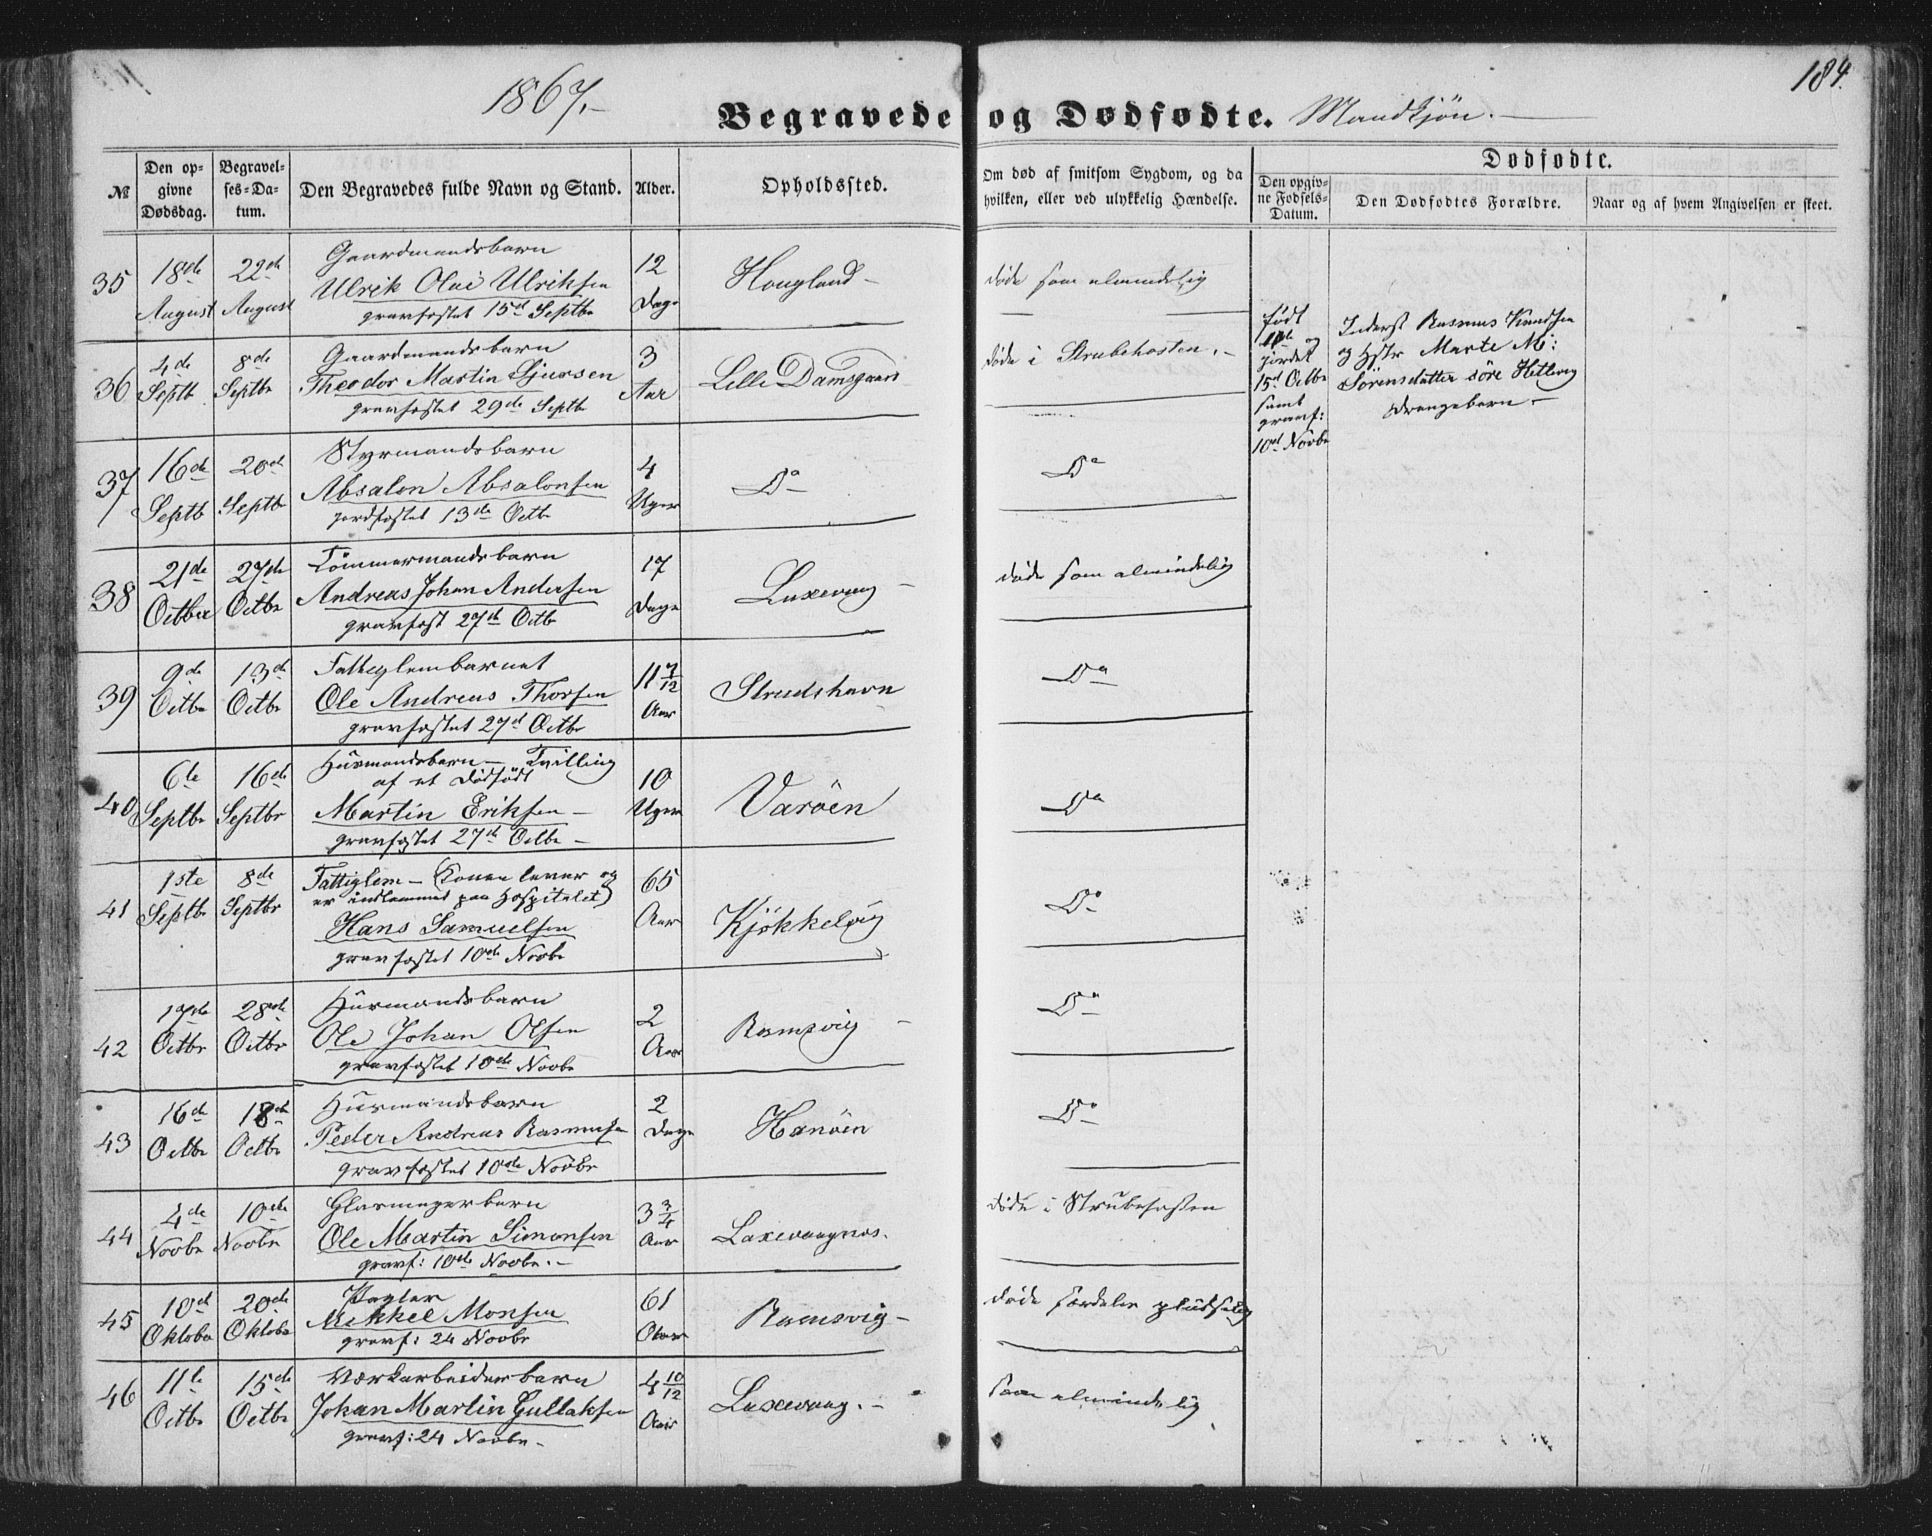 184.
1867.-
Begravede og Dødfødte. Mandkjön.
№
Den opgivne Dødsdag.
Begravelses-Datum.
Den Begravedes fulde Navn og Stand.
Alder.
Opholdssted.
Om død af smitsom Sygdom, og da hvilken, eller ved ulykkelig Hændelse.
Dødfødte.
Den opgivne Fødsels-Datum.
Den Dødfødtes Forældre.
Naar og af hvem Angivelsen er skeet.
35 18de August 22de August
Gaardmandsbarn
Ulrik Olai Ulriksen
gravfæstet 15d Septbr
12 Dage Hougland - døde som almindelig
født
11te og
jordet
15d Octbr
samt
gravf:
10de Novbr
Inderst Rasmus Knudsen
og Hstr Marte M:
Sörensdatter söre Hetlevig
Drengebarn -
36 4de Septb 8de Septbr
Gaardmandsbarn
Theodor Martin Sjursen
gravfæstet 29de Septbr
3 Aar Lille Damsgaard døde i Strubehosten.-
37 16de Septb 20de Septbr
Styrmandsbarn
Absalon Absalonsen
jordfæstet 13de Octbr
4 Uger Do Do
38 21de Octber 27de Octbr
Tömmermandsbarn
Andreas Johan Andersen
gravfæst 27de Octbr
17 Dage Laxevaag - døde som almindelig
39 9de Octbr 13de Octbr
Fattiglembarnet
Ole Andreas Thorsen
gravfæstet 27d Octbr
11 7/12 Aar Strudshavn Do
40 6te Septbr 16de Septbr
Husmandsbarn - Tvilling
af et Dødfødt
Martin Eriksen -
gravfæstet 27de Octbr -
10 Uger Varöen Do
41 1ste Septbr 8de Septbr
Fattiglem - (Konen lever og
er indlemmet paa Hospitalet)
Hans Samuelsen
gravfæstet 10de Novbr
65 Aar Kjøkkelvig Do
42 17de Octbr 28de Octbr
Husmandsbarn
Ole Johan Olsen
gravfæstet 10de Novbr
2 Aar Ramsvig - Do
43 16de Octbr 18de Octbr
Husmandsbarn
Peder Andreas Rasmusen
gravfæstet 10de Novbr
2 Dage Hanöen Do
44 4de Novbr 10de Novbr
Glarmesterbarn
Ole Martin Simonsen
gravf: 10de Novbr.-
3 3/4 Aar Laxevaagnæs. døde i Strubehosten
45 10de Oktober 20de Oktober
Mikkel Monsen
gravf: 24 Novbr
61 Ramsvig - døde særdeles pludselig
46 11te Octbr 15de Octbr
Værkarbeiderbarn
Johan Martin Gullaksen
gravf: 24 Novbr-
4 10/12 Aar Laxevaag.- som almindelig